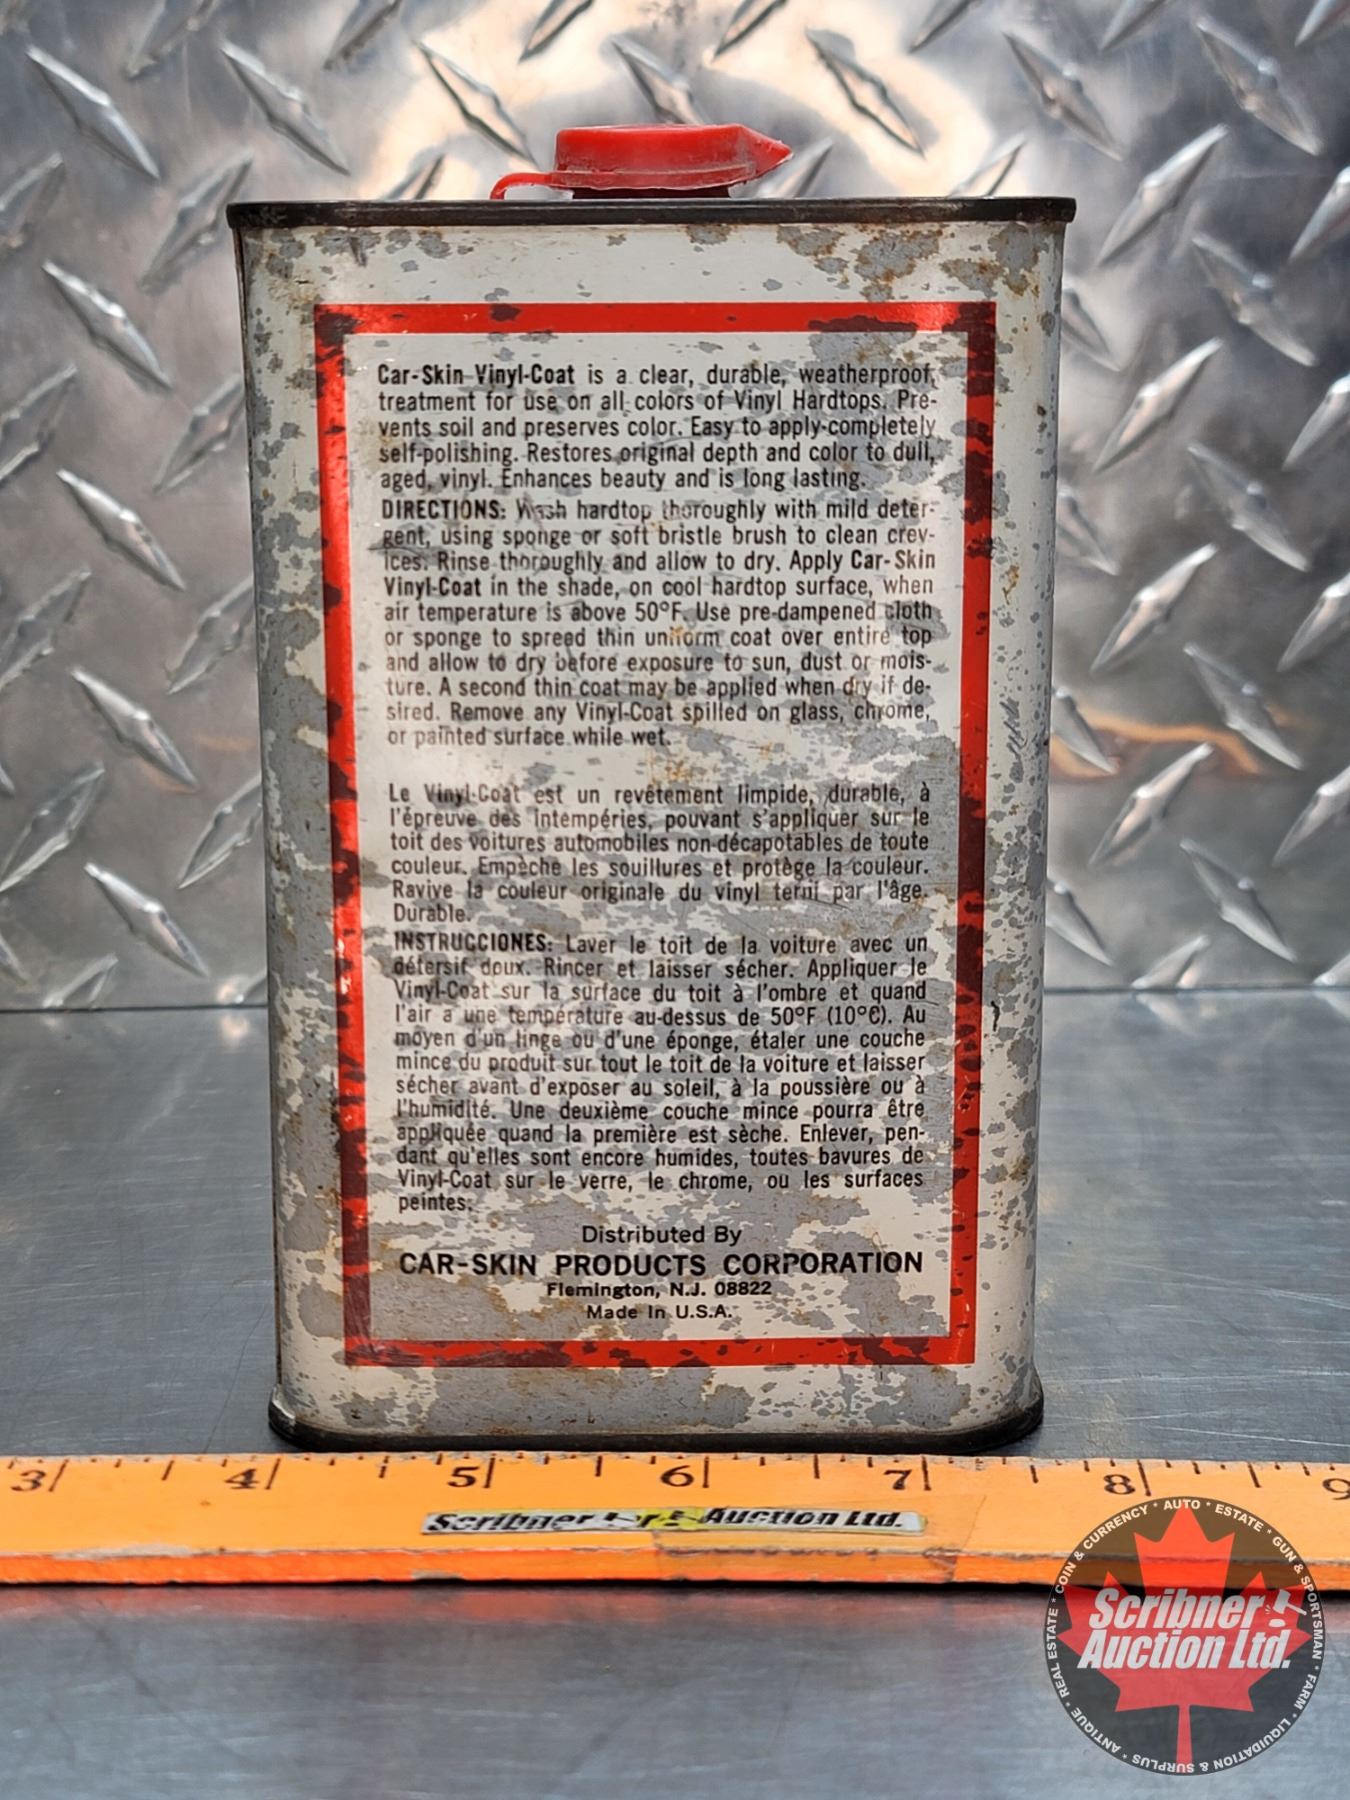 Car-Skin Vinyl-Coat is a clear, durable, weatherproof,
treatment for use on all colors of Vinyl Hardtops. Pre-
vents soil and preserves color. Easy to apply-completely
self-polishing. Restores original depth and color to dull,
aged, vinyl. Enhances beauty and is long lasting.
DIRECTIONS: Wash hardtop thoroughly with mild deter-
gent, using sponge or soft bristle brush to clean crev-
ices. Rinse thoroughly and allow to dry. Apply Car-Skin
Vinyl-Coat in the shade, on cool hardtop surface, when
air temperature is above 50°F. Use pre-dampened cloth
or sponge to spreed thin uniform coat over entire top
and allow to dry before exposure to sun, dust or mois-
ture. A second thin coat may be applied when dry if de-
sired. Remove any Vinyl-Coat spilled on glass, chrome,
or painted surface while wet.
Le Vinyl-Coat est un revêtement limpide, durable, à
l'épreuve des intempéries, pouvant s'appliquer sur le
toit des voitures automobiles non-décapotables de toute
couleur. Empèche les souillures et protège la couleur.
Ravive la couleur originale du vinyl terni par l'âge.
Durable.
INSTRUCCIONES: Laver le toit de la voiture avec un
détersif doux. Rincer et laisser sécher. Appliquer le
Vinyl-Coat sur la surface du toit à l'ombre et quand
l'air a une température au-dessus de 50°F (10°C). Au
moyen d'un linge ou d'une éponge, étaler une couche
mince du produit sur tout le toit de la voiture et laisser
sécher avant d'exposer au soleil, à la poussière ou à
l'humidité. Une deuxième couche mince pourra être
appliquée quand la première est sèche. Enlever, pen-
dant qu'elles sont encore humides, toutes bavures de
Vinyl-Coat sur le verre, le chrome, ou les surfaces
peintes.
Distributed By
CAR-SKIN PRODUCTS CORPORATION
Flemington, N.J. 08822
Made In U.S.A.
3 4 5 6 7 8 9
Scribner Auction Ltd.
COIN & CURRENCY * AUTO * ESTATE * GUN & SPORTSMAN * FARM * LIQUIDATION & SURPLUS * ANTIQUE * REAL ESTATE *
Scribner
Auction Ltd.